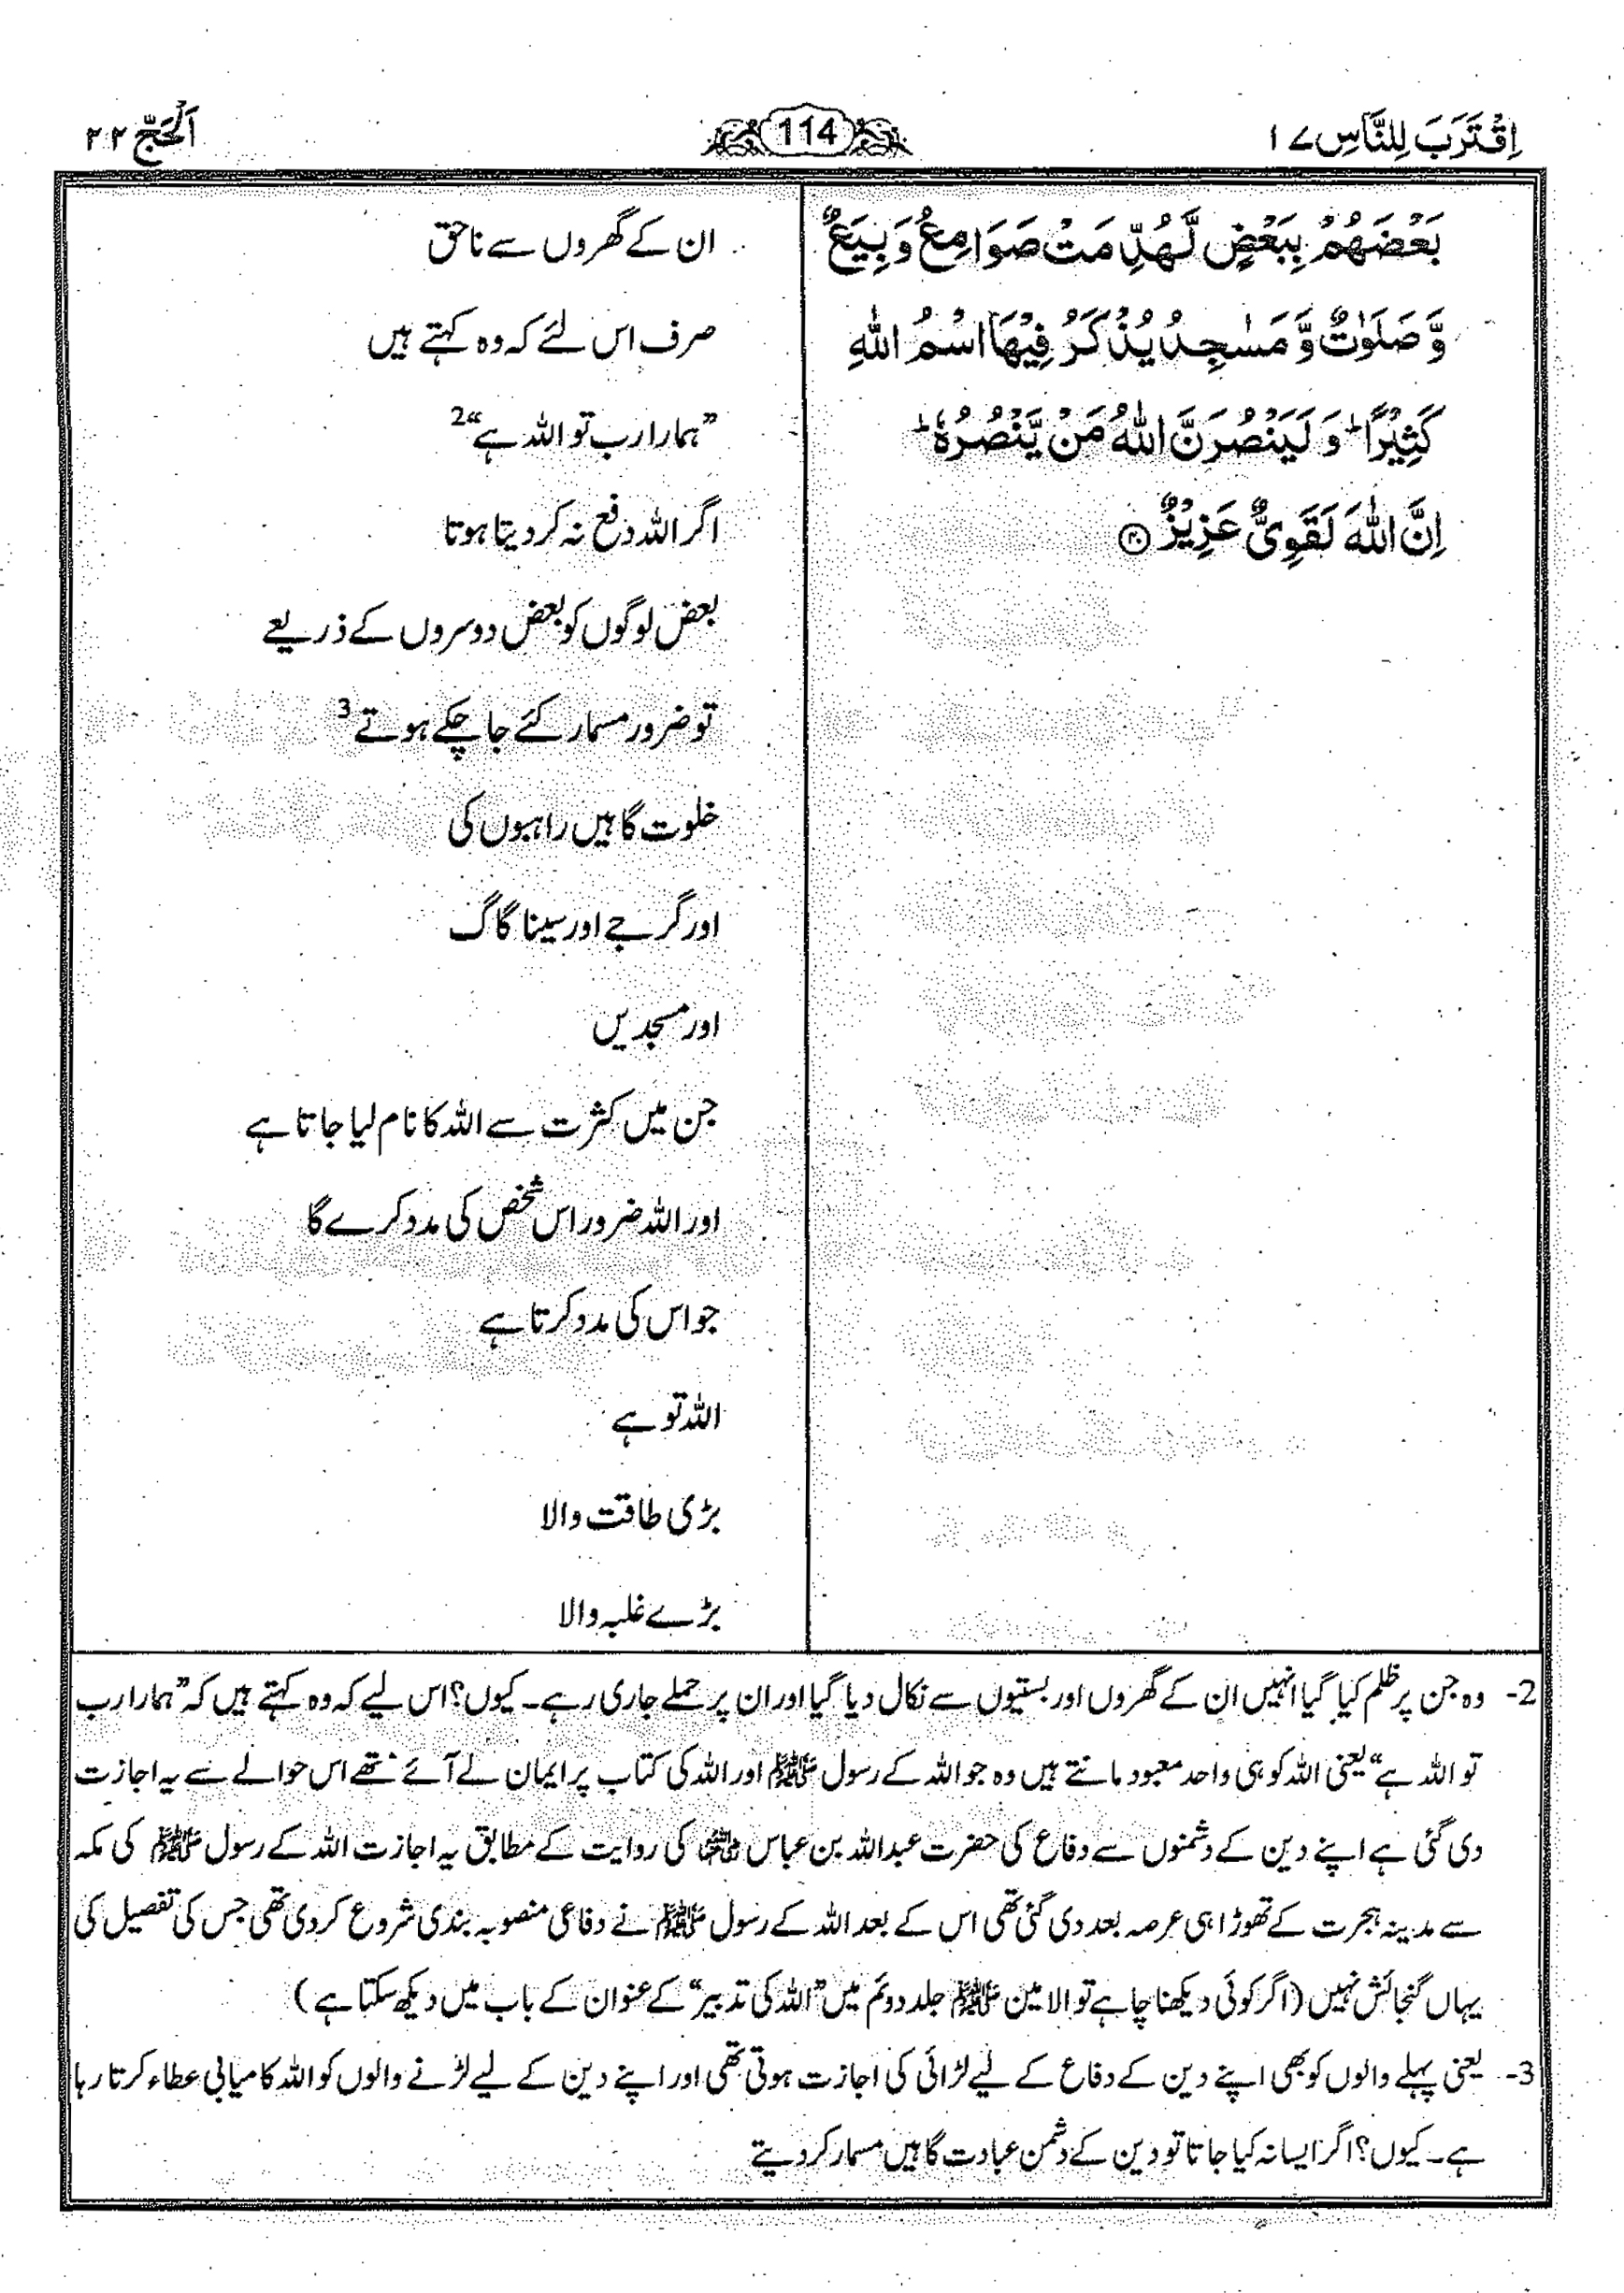 اِقْتَرَبَ لِلنَّاسِ ۱۷
114
اَلْحَجّ ۲۲
بَعْضَهُمْ بِبَعْضٍ لَّهُدِّمَتْ صَوَامِعُ وَبِيَعٌ
وَّصَلَوٰتٌ وَّمَسٰجِدُ يُذْكَرُ فِيْهَا اسْمُ اللّٰهِ
كَثِيْرًا ؕ وَلَيَنْصُرَنَّ اللّٰهُ مَنْ يَّنْصُرُهٗ ؕ
اِنَّ اللّٰهَ لَقَوِىٌّ عَزِيْزٌ ۴۰
ان کے گھروں سے ناحق
صرف اس لئے کہ وہ کہتے ہیں
”ہمارا رب تو اللہ ہے“2
اگر اللہ دفع نہ کر دیتا ہوتا
بعض لوگوں کو بعض دوسروں کے ذریعے
تو ضرور مسمار کئے جا چکے ہوتے3
خلوت گاہیں راہبوں کی
اور گرجے اور سیناگاگ
اور مسجدیں
جن میں کثرت سے اللہ کا نام لیا جاتا ہے
اور اللہ ضرور اس شخص کی مدد کرے گا
جو اس کی مدد کرتا ہے
اللہ تو ہے
بڑی طاقت والا
بڑے غلبہ والا
2- وہ جن پر ظلم کیا گیا انہیں ان کے گھروں اور بستیوں سے نکال دیا گیا اور ان پر حملے جاری رہے۔ کیوں؟ اس لیے کہ وہ کہتے ہیں کہ ”ہمارا رب
تو اللہ ہے“ یعنی اللہ کو ہی واحد معبود مانتے ہیں وہ جو اللہ کے رسول ﷺ اور اللہ کی کتاب پر ایمان لے آئے تھے اس حوالے سے یہ اجازت
دی گئی ہے اپنے دین کے دشمنوں سے دفاع کی حضرت عبداللہ بن عباس رضی اللہ عنہ کی روایت کے مطابق یہ اجازت اللہ کے رسول ﷺ کی مکہ
سے مدینہ ہجرت کے تھوڑا ہی عرصہ بعد دی گئی تھی اس کے بعد اللہ کے رسول ﷺ نے دفاعی منصوبہ بندی شروع کر دی تھی جس کی تفصیل کی
یہاں گنجائش نہیں (اگر کوئی دیکھنا چاہے تو الامین ﷺ جلد دوئم میں ”اللہ کی تدبیر“ کے عنوان کے باب میں دیکھ سکتا ہے)
3- یعنی پہلے والوں کو بھی اپنے دین کے دفاع کے لیے لڑائی کی اجازت ہوتی تھی اور اپنے دین کے لیے لڑنے والوں کو اللہ کامیابی عطاء کرتا رہا
ہے۔ کیوں؟ اگر ایسا نہ کیا جاتا تو دین کے دشمن عبادت گاہیں مسمار کر دیتے